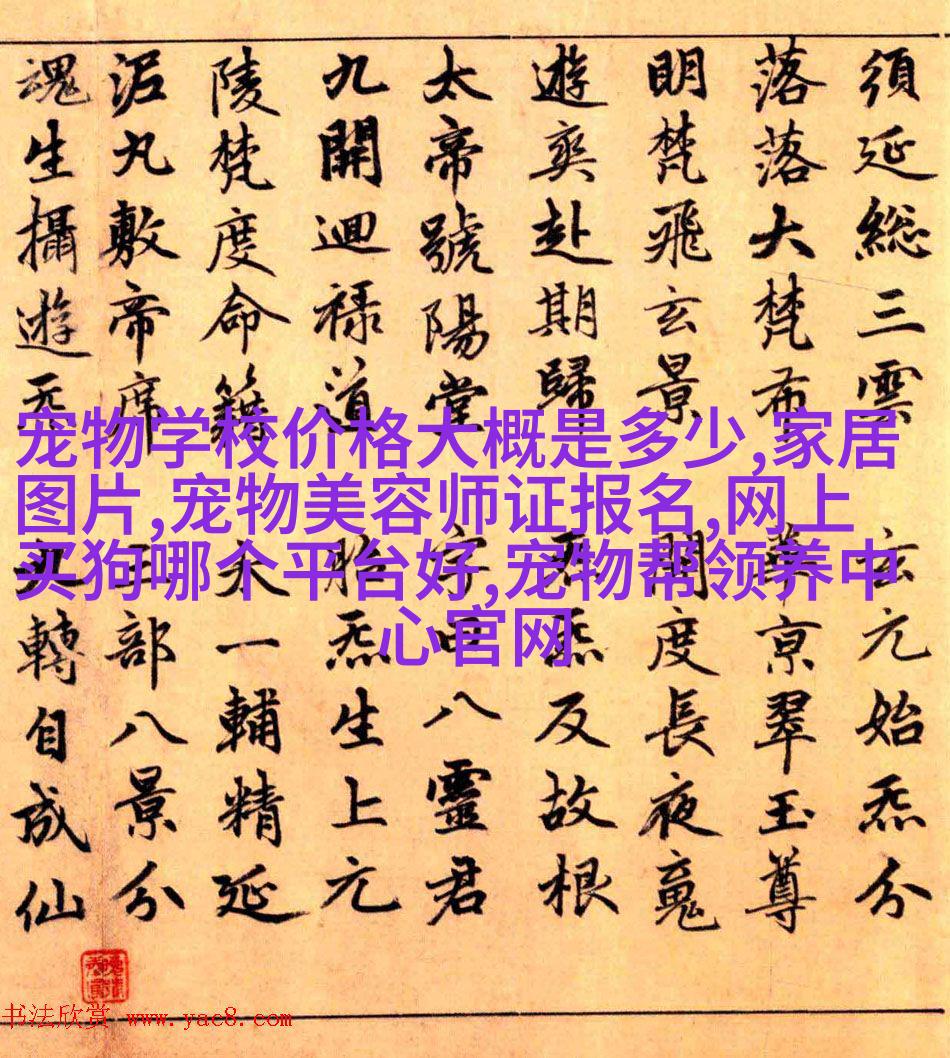 須延総三雲 玄元始炁分
落落大梵布 京翠玉尊
明梵飛玄景 開度長夜魂
遊爽赴期歸 炁反故根
太帝號陽堂 字曰八靈君
九開迴禄道 胎炁生上元
陵梵度命籍 太一輔精延
泥丸敷帝席 三部八景分
魂生攝遊 轉自成仙
宠物学校价格大概是多少,家居
图片,宠物美容师证报名,网上
买狗哪个平台好,宠物帮领养中
心官网
书法欣赏 www.yac8.com